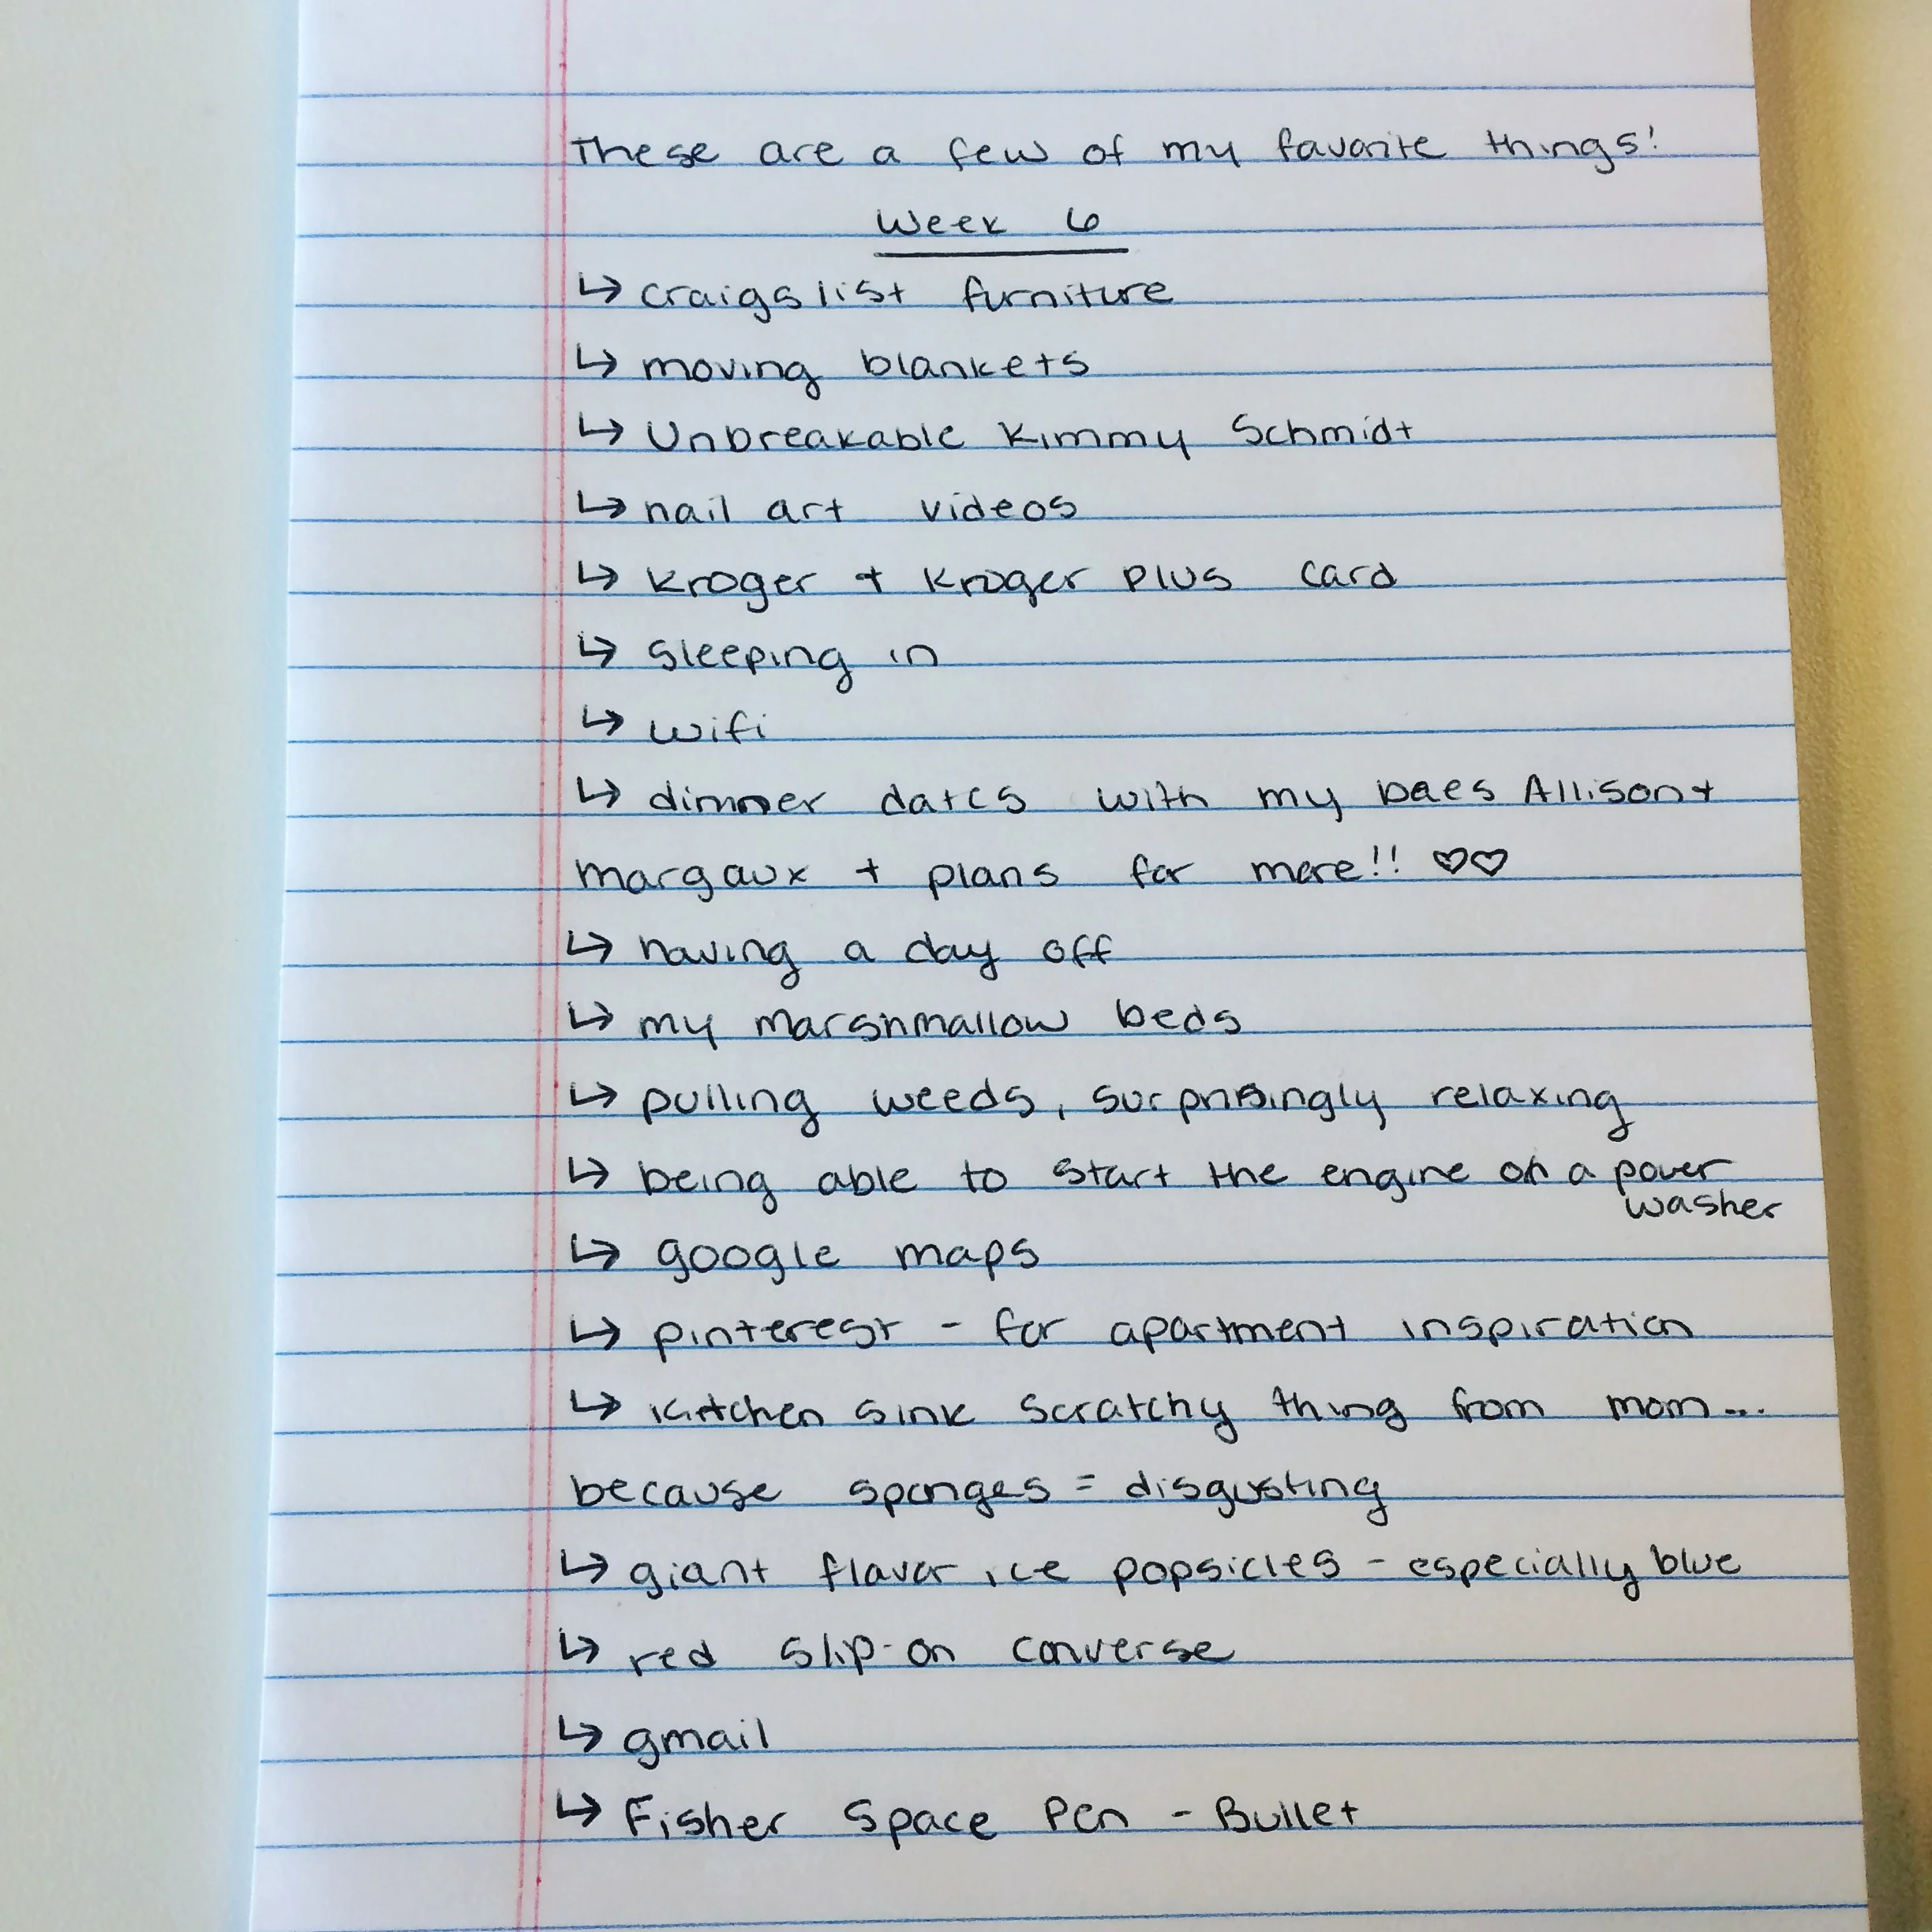 These are a few of my favorite things!
Week 6
↳ craigslist furniture
↳ moving blankets
↳ Unbreakable Kimmy Schmidt
↳ nail art videos
↳ Kroger + Kroger plus card
↳ sleeping in
↳ wifi
↳ dinner dates with my baes Allison +
margaux + plans for more!! ♡♡
↳ having a day off
↳ my marshmallow beds
↳ pulling weeds, surprisingly relaxing
↳ being able to start the engine on a power
washer
↳ google maps
↳ pinterest - for apartment inspiration
↳ kitchen sink scratchy thing from mom...
because sponges = disgusting
↳ giant flavor ice popsicles - especially blue
↳ red slip-on converse
↳ gmail
↳ Fisher Space Pen - Bullet